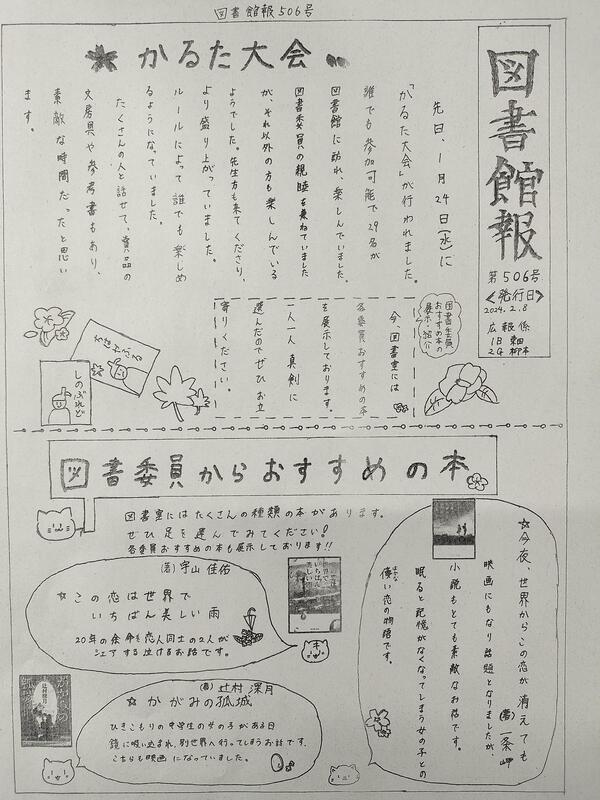 図書館報506号
図書館報
第506号
<発行日>
2024.2.8
広報係
かるた大会
先日、1月24日(水)に
「かるた大会」が行われました。
誰でも参加可能で29名が
図書館に訪れ、楽しんでいました。
図書委員の親睦も兼ねていました
が、それ以外の方も楽しんでいる
ようでした。先生方も来てくださり、
より盛り上がっていました。
ルールによって誰でも楽しめ
るようになっていました。
たくさんの人と話せて、賞品の
文房具や参考書もあり、
素敵な時間だったと思い
ます。
図書委員
おすすめの本の
展示・紹介
今、図書室には
各委員おすすめの本
を展示しております。
一人一人真剣に
選んだのでぜひお立
寄りください。
ちはやぶる
しのぶれど
図書委員からおすすめの本
図書室にはたくさんの種類の本があります。
ぜひ足を運んでみてください!
各委員おすすめの本も展示しております!!
☆今夜、世界からこの恋が消えても
(著)一条 岬
映画にもなり話題となりましたが、
小説もとても素敵なお話です。
眠ると記憶がなくなってしまう女の子との
儚い恋の物語です。
はかな
(著)宇山 佳佑
☆この恋は世界で
いちばん美しい雨
20年の余命を恋人同士の2人が
シェアする泣けるお話です。
(著)辻村 深月
☆かがみの孤城
ひきこもりの中学生の女の子がある日
鏡に吸い込まれ、別世界へ行ってしまうお話です。
こちらも映画になっていました。